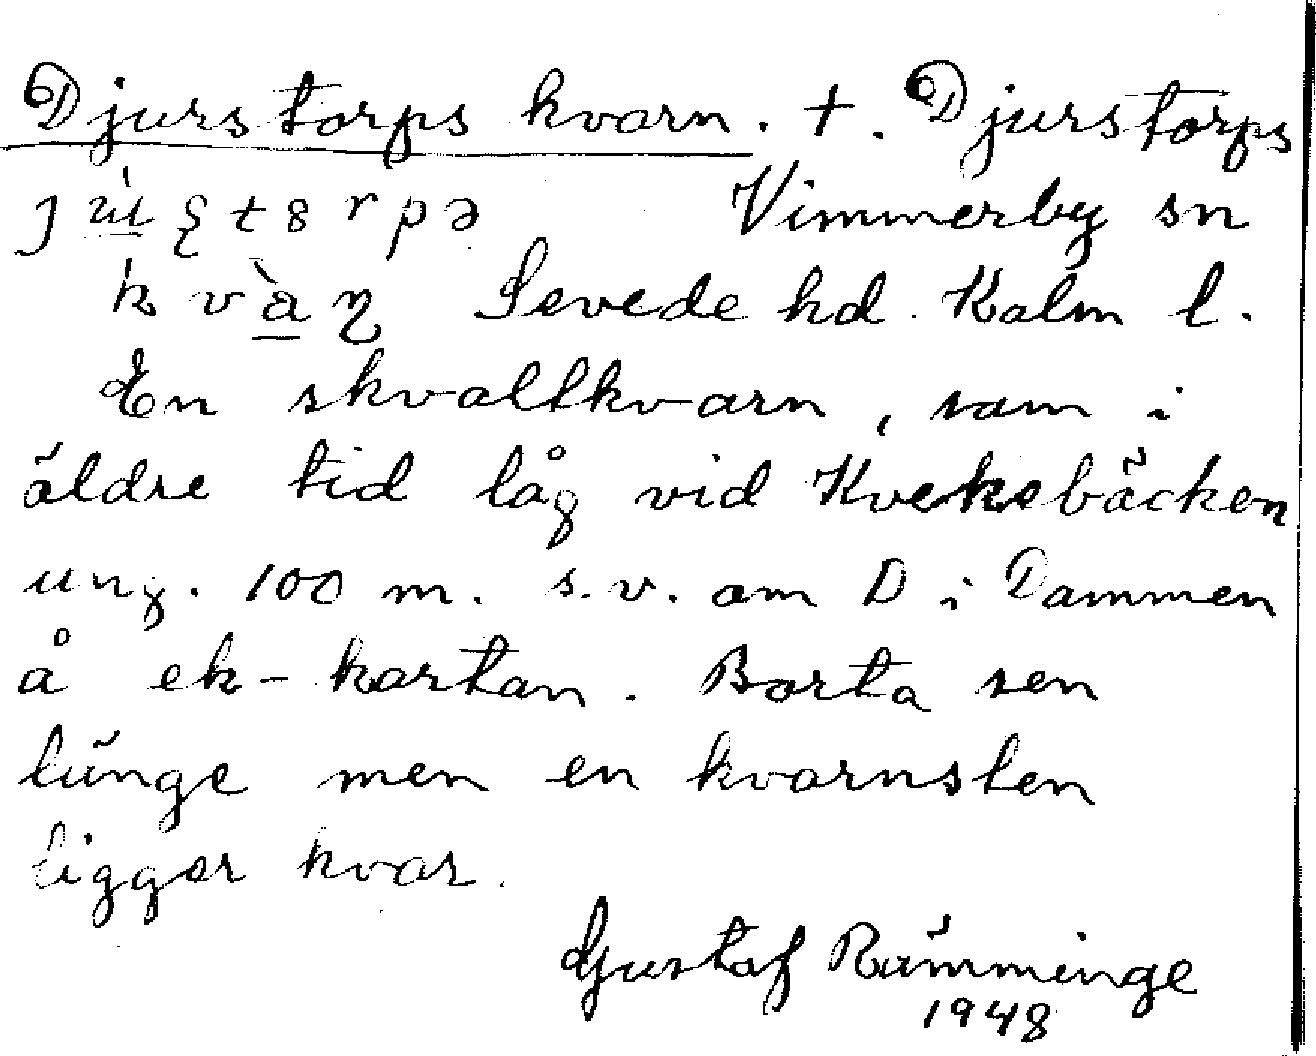 Djurstorps kvarn. +. Djurstorps
Vimmerby sn
Sevede hd. Kalm l.
En skvaltkvarn, som i
äldre tid låg vid Kveksbäcken
ung. 100 m. s.v. om D i Dammen
å ek-kartan. Borta sen
länge men en kvarnsten
ligger kvar.
Gustaf Rämminge
1948